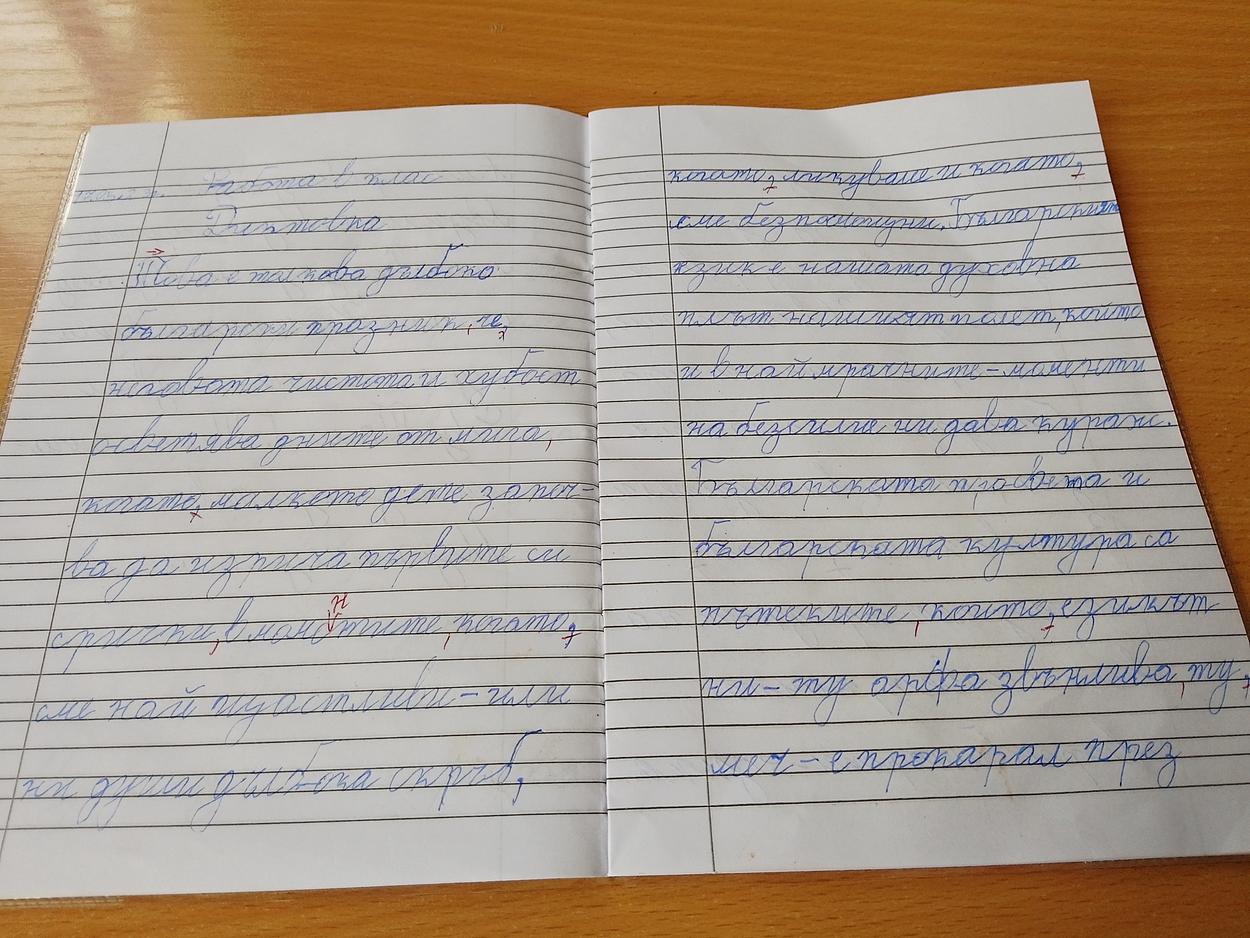 Работа в клас
Диктовка
Това е толкова дълбоко
български празник, че,
неговата чистота и хубост
осветява дните от мига,
когато, малкото дете започ-
ва да изрича първите си
срички, в момен­тите, когато,
сме най щастливи – или
ни души дълбока скръб,
когато, ликуваме и когато,
сме безпомощни. Българският
език е нашата духовна
плът нашият полет, който
и в най мрачните – моменти
на безсилие ни дава кураж.
Българската просвета и
българската култура са
пътеките, които, езикът
ни – ту арфа звънлива, ту,
меч – е прокарал през